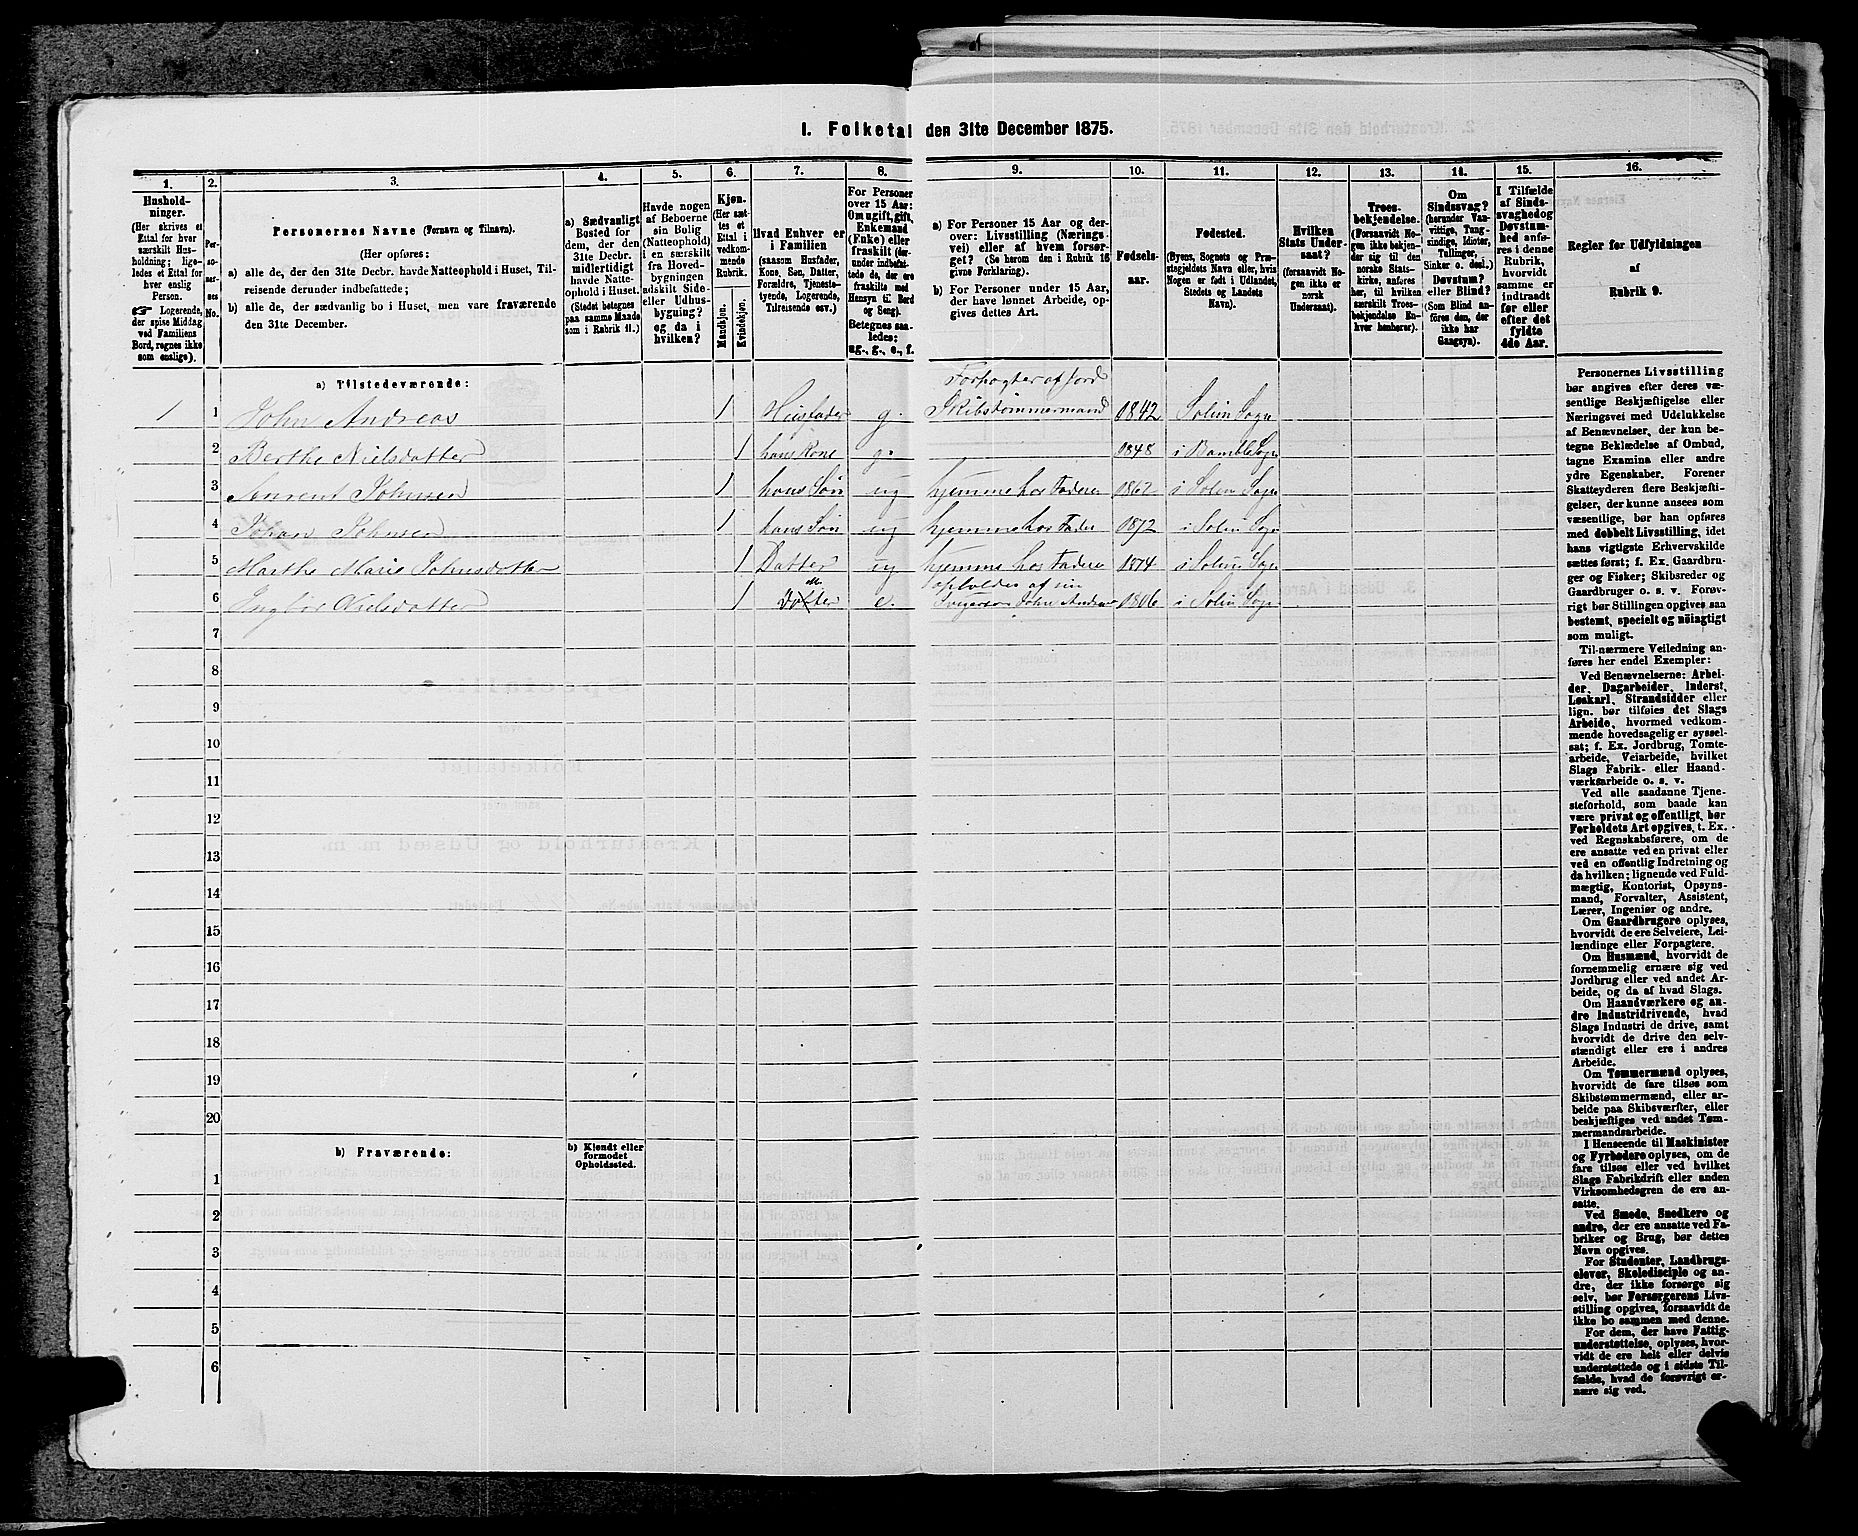 I. Folketal den 31te December 1875.
1. 2. 3. 4. 5. 6. 7. 8. 9. 10. 11. 12. 13. 14. 15. 16.
Husholdninger.
(Her skrives et
Ettal for hver
særskilt Hus-
holdning; lige-
ledes et Ettal for
hver enslig
Person.
☞ Logerende,
der spise Middag
ved Familiens
Bord, regnes ikke
som enslige).
Per-
soner-
nes
No.
Personernes Navne (Fornavn og Tilnavn).
(Her opføres:
a) alle de, der den 31te Decbr. havde Natteophold i Huset, Til-
reisende derunder indbefattede;
b) alle de, der sædvanlig bo i Huset, men vare fraværende
den 31te December.
a) Sædvanligt
Bosted for
dem, der den
31te Decbr.
midlertidigt
havde Natte-
ophold i Huset.
(Stedet betegnes
paa samme Maade
som i Rubrik 11.)
Havde nogen
af Beboerne
sin Bolig
(Natteophold)
i en særskilt
fra Hoved-
bygningen
adskilt Side-
eller Udhus-
bygning?
og da i
hvilken?
Kjøn.
(Her sæt-
tes et
Ettal i
vedkom-
mende
Rubrik.
Mandkjøn.
Kvindekjøn.
Hvad Enhver er
i Familien
(saasom Husfader,
Kone, Søn, Datter,
Forældre, Tjeneste-
tyende, Logerende,
Tilreisende osv.)
For Personer
over 15 Aar:
Om ugift, gift,
Enkemand
(Enke) eller
fraskilt (der-
under indbefat-
tede de, der ere
fraskilte med
Hensyn til Bord
og Seng).
Betegnes saa-
ledes:
ug., g., e., f.
a) For Personer 15 Aar og der-
over: Livsstilling (Nærings
vei) eller af hvem forsør-
get? (Se herom den i Rubrik 16
givne Forklaring).
b) For Personer under 15 Aar,
der have lønnet Arbeide, op-
gives dettes Art.
Fødsels-
aar.
Fødested.
(Byens, Sognets og Præ-
stegjeldets Navn eller, hvis
Nogen er født i Udlandet,
Stedets og Landets
Navn).
Hvilken
Stats Under-
saat?
(forsaavidt No-
gen ikke er
norsk
Undersaat).
Troes-
bekjendelse.
(Forsaavidt No-
gen ikke bekjen-
der sig til den
norske Stats-
kirke, anføres
her, til hvilken
særskilt Troes-
bekjendelse En-
hver henhører).
Om
Sindssvag?
(herunder Van-
vittige, Tung-
sindige, Idioter,
Tullinger,
Sinker o. desl.)
Døvstum?
eller Blind?
(Som Blind an-
føres den, der
ikke har
Gangsyn).
I Tilfælde
af Sinds-
svaghed og
Døvstum-
hed anfø-
res i denne
Rubrik,
hvorvidt
samme er
indtraadt
før eller
efter det
fyldte
4de Aar.
Regler for Udfyldningen
af
Rubrik 9.
a) Tilstedeværende:
Forpagter af jord
1 1 John Andreas 1 Husfader g. Skibstømmermand 1842 Solum Sogn
2 Berthe Nielsdatter 1 hans Kone g. 1848 i Bamble Sogn
3 Anrent Johnsen 1 hans Søn ug hjemme hos Faderen 1862 i Solum Sogn
4 Johan Johnsen 1 hans Søn ug hjemme hos Fader 1872 i Solum Sogn
5 Marthe Marie Johnsdatter 1 Datter ug hjemme hos Faderen 1874 i Solum Sogn
opholdes af sin
6 Ingbør Nielsdatter 1 e. Svigersøn John Andreas 1806 i Solum Sogn
7
8
9
10
11
12
13
14
15
16
17
18
19
20
b) Fraværende:
b) Kjendt eller
formodet
Opholdssted.
1
2
3
4
5
6
Personernes Livsstilling
bør angives efter deres væ-
sentlige Beskjæftigelse eller
Næringsvei med Udelukkelse
af Benævnelser, der kun be-
tegne Beklædelse af Ombud,
tagne Examina eller andre
ydre Egenskaber. Forener
Skatteyderen flere Beskjæfti-
gelser, der kunne ansees som
væsentlige, bør han opføres
med dobbelt Livsstilling, idet
hans vigtigste Erhvervskilde
sættes først; f. Ex. Gaardbru-
ger og Fisker; Skibsreder og
Gaardbruger o. s. v. Forøv-
rigt bør Stillingen opgives saa
bestemt, specielt og nöiagtigt
som muligt.
Til nærmere Veiledning an-
føres her endel Exempler:
Ved Benævnelserne: Arbei-
der, Dagarbeider, Inderst,
Løskarl, Strandsidder eller
lign. bør tilføies det Slags
Arbeide, hvormed vedkom-
mende hovedsagelig er syssel-
sat; f. Ex. Jordbrug, Tomte-
arbeide, Veiarbeide, hvilket
Slags Fabrik- eller Haand-
værksarbeide o. s. v.
Ved alle saadanne Tjene-
steforhold, som baade kan
være privat og offentligt, bør
Forholdets Art opgives, t. Ex.
ved Regnskabsførere, om de
ere ansatte ved en privat eller
ved en offentlig Indretning og
da hvilken; lignende ved Fuld-
mægtig, Kontorist, Opsyns-
mand, Forvalter, Assistent,
Lærer, Ingeniør og andre.
Om Gaardbrugere oplyses,
hvorvidt de ere Selveiere, Lei-
lændinge eller Forpagtere.
Om Husmænd, hvorvidt de
fornemmelig ernære sig ved
Jordbrug eller ved andet Ar-
beide, og da af hvad Slags.
Om Haandværkere og an-
dre Industridrivende, hvad
Slags Industri de drive, samt
hvorvidt de drive den selv-
stændigt eller ere i andres
Arbeide.
Om Tømmermænd oplyses,
hvorvidt de fare tilsøs som
Skibstømmermænd, eller ar-
beide paa Skibsværfter, eller
beskjæftiges ved andet Tøm-
mermandsarbeide.
I Henseende til Maskinister
og Fyrbødere oplyses, om de
fare tilsøs eller ved hvilket
Slags Fabrikdrift eller anden
Virksomhedsgren de ere an-
satte.
Ved Smede, Snedkere og
andre, der ere ansatte ved Fa-
briker og Brug, bør dettes
Navn opgives.
For Studenter, Landbrugs-
elever, Skoledisciple og an-
dre, der ikke forsørge sig
selv, bør Forsørgerens Livs-
stilling opgives, forsaavidt de
ikke bo sammen med denne.
For dem, der have Fattig-
understøttelse, oplyses, hvor-
vidt de ere helt eller delvis
understøttede og i sidste Til-
fælde, hvad de forøvrigt er-
nære sig ved.